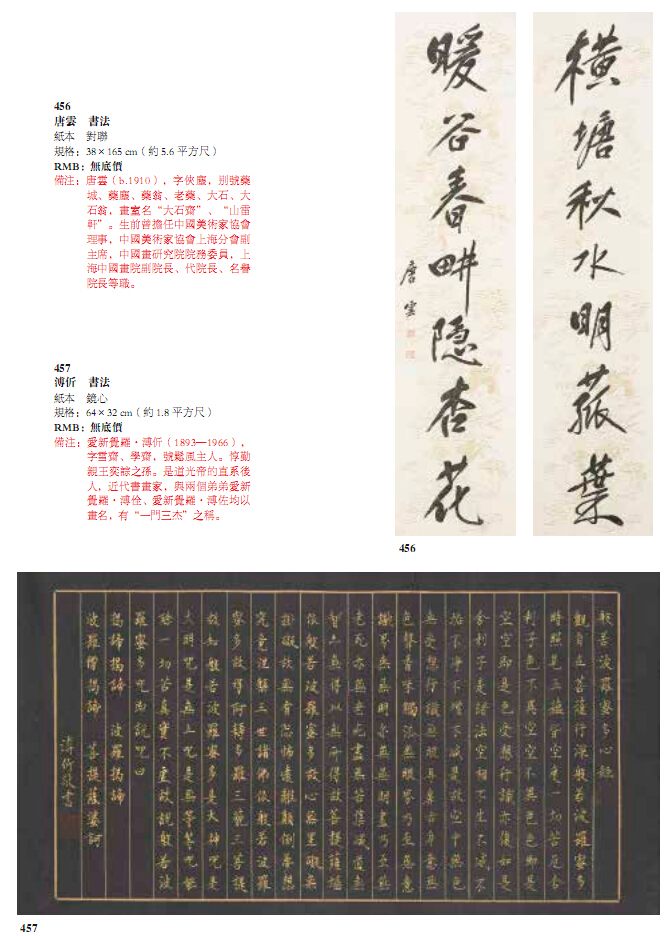 456
唐雲　書法
紙本　對聯
規格：38×165 cm（約5.6平方尺）
RMB：無底價
備注：唐雲（b.1910），字俠塵，別號藥
城、藥塵、藥翁、老藥、大石、大
石翁，畫室名“大石齋”、“山雷
軒”。生前曾擔任中國美術家協會
理事，中國美術家協會上海分會副
主席，中國畫研究院院務委員，上
海中國畫院副院長、代院長、名譽
院長等職。
457
溥伒　書法
紙本　鏡心
規格：64×32 cm（約1.8平方尺）
RMB：無底價
備注：愛新覺羅·溥伒（1893—1966），
字雪齋、學齋，號鬆風主人。惇勤
親王奕誴之孫。是道光帝的直系後
人，近代書畫家，與兩個弟弟愛新
覺羅·溥佺、愛新覺羅·溥佐均以
畫名，有“一門三杰”之稱。
橫塘秋水明菰葉
暖谷春畊隱杏花
唐雲
456
般若波羅蜜多心經
觀自在菩薩行深般若波羅蜜多
時照見五蘊皆空度一切苦厄舍
利子色不異空空不異色色即是
空空即是色受想行識亦復如是
舍利子是諸法空相不生不滅不
垢不淨不增不減是故空中無色
無受想行識無眼耳鼻舌身意無
色聲香味觸法無眼界乃至無意
識界無無明亦無無明盡乃至無
老死亦無老死盡無苦集滅道無
智亦無得以無所得故菩提薩埵
依般若波羅蜜多故心無罣礙無
罣礙故無有恐怖遠離顛倒夢想
究竟涅槃三世諸佛依般若波羅
蜜多故得阿耨多羅三藐三菩提
故知般若波羅蜜多是大神咒是
大明咒是無上咒是無等等咒能
除一切苦真實不虛故說般若波
羅蜜多咒即說咒曰
揭諦揭諦　波羅揭諦
波羅僧揭諦　菩提薩婆訶
溥伒敬書
457